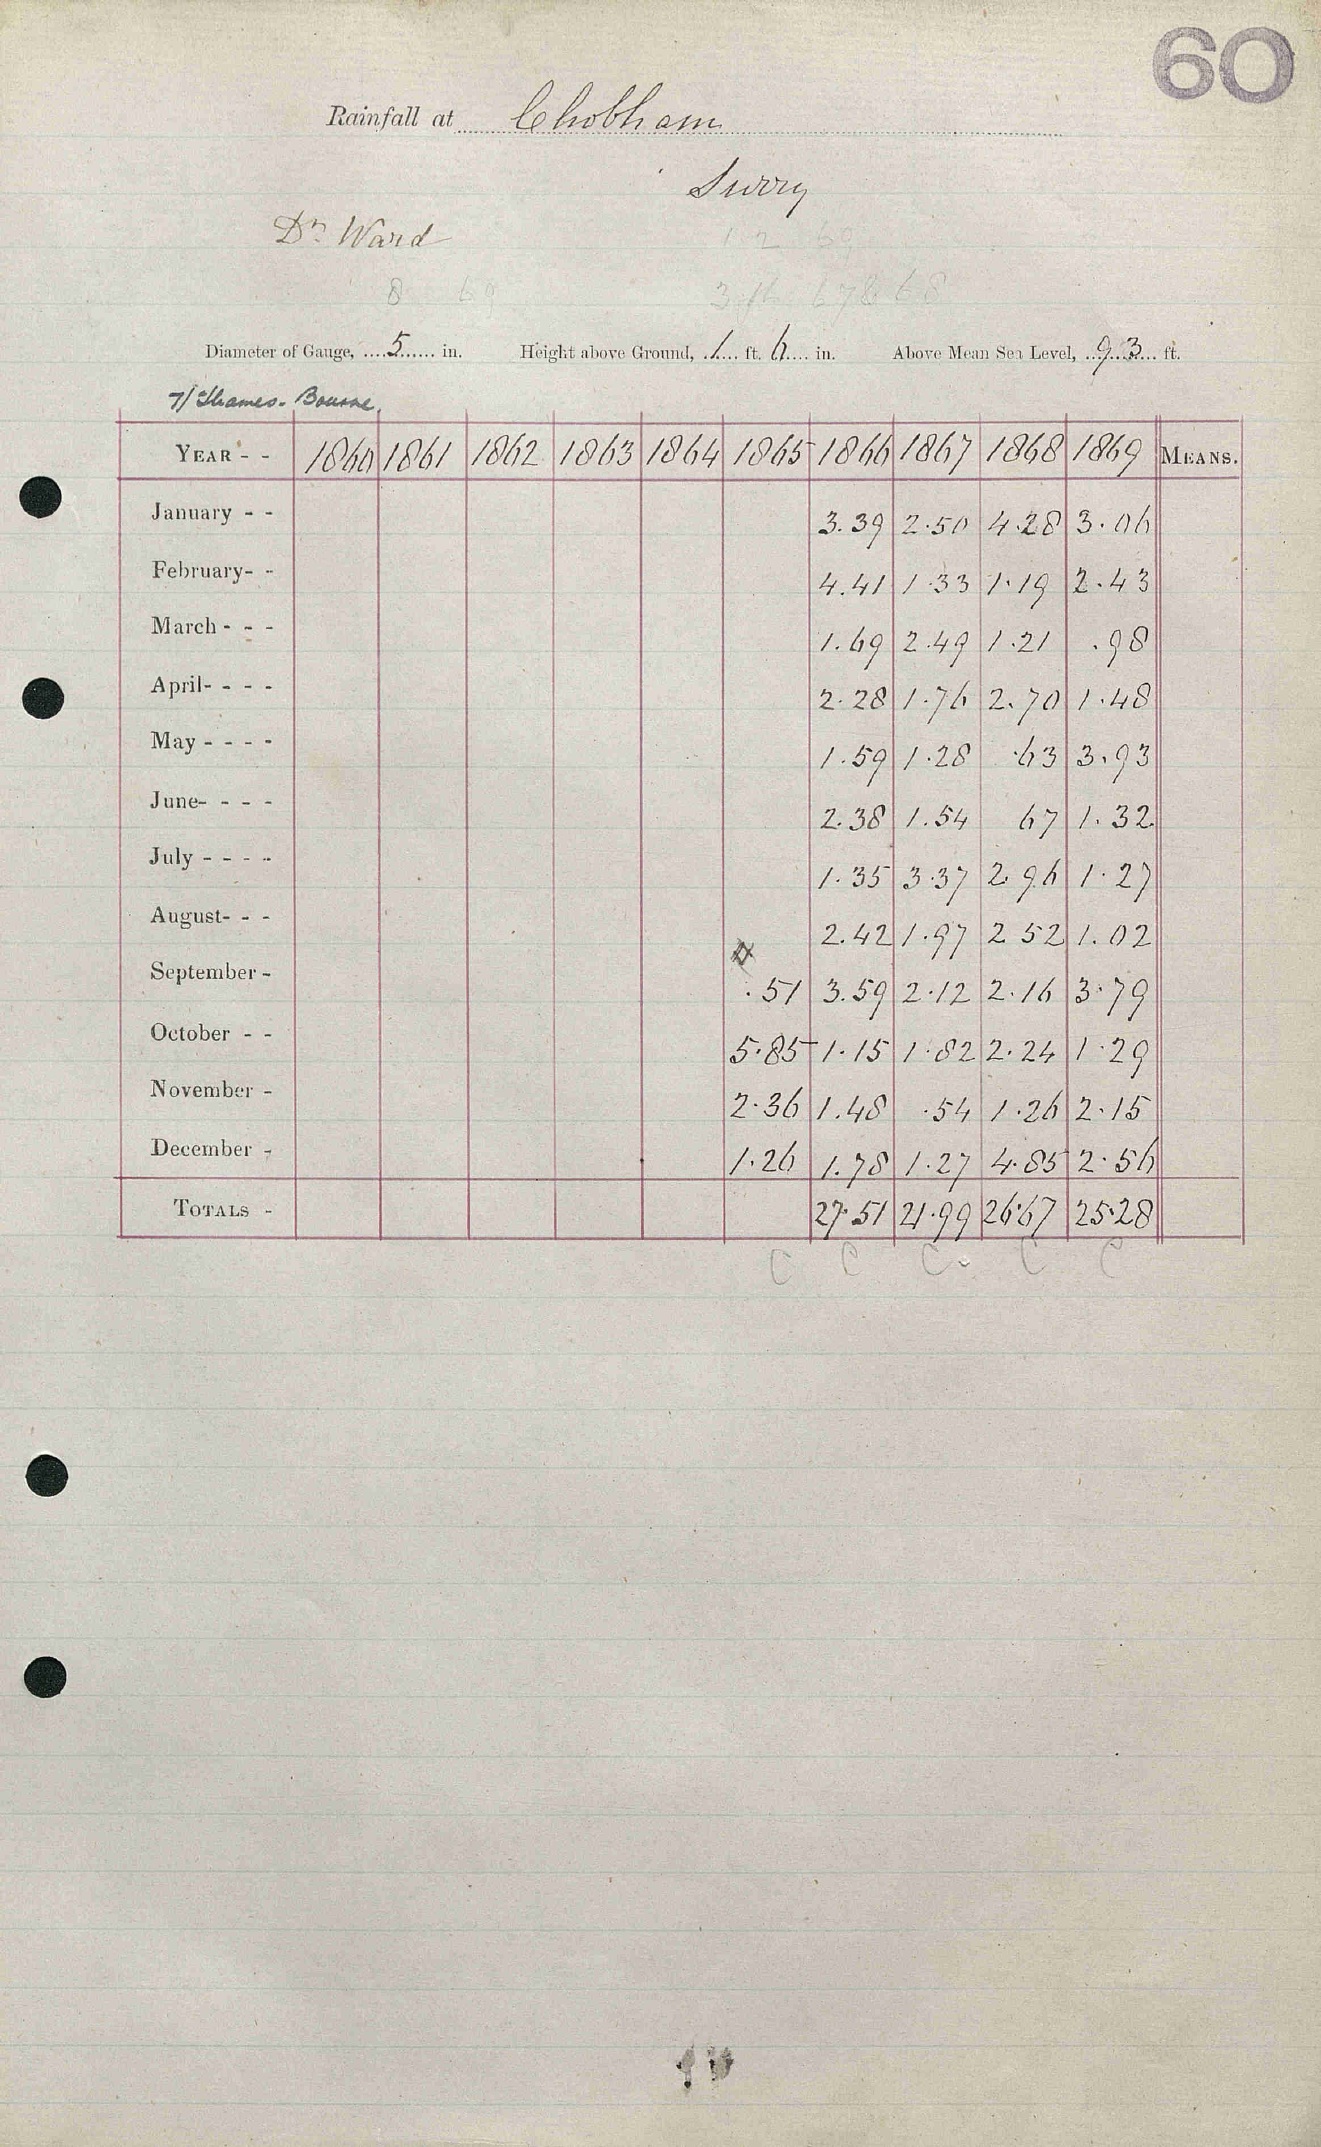 60
Rainfall at Chobham
Surry
Dr. Ward
1 2 69
8 69
3 ft 67 & 68
Diameter of Gauge, 5 in. Height above Ground, 1 ft. 6 in. Above Mean Sea Level, 93 ft.
7/ Thames - Bourne.
YEAR - - 1860 1861 1862 1863 1864 1865 1866 1867 1868 1869 MEANS.
January - - 3.39 2.50 4.28 3.06
February- - 4.41 1.33 1.19 2.43
March - - - 1.69 2.49 1.21 .98
April- - - - 2.28 1.76 2.70 1.48
May - - - - 1.59 1.28 .63 3.93
June- - - - 2.38 1.54 67 1.32
July - - - - 1.35 3.37 2.96 1.27
August- - - 2.42 1.97 2 52 1.02
September - .51 3.59 2.12 2.16 3.79
October - - 5.85 1.15 1.82 2.24 1.29
November - 2.36 1.48 .54 1.26 2.15
December - 1.26 1.78 1.27 4.85 2.56
TOTALS - 27.51 21.99 26.67 25.28
C C C C C